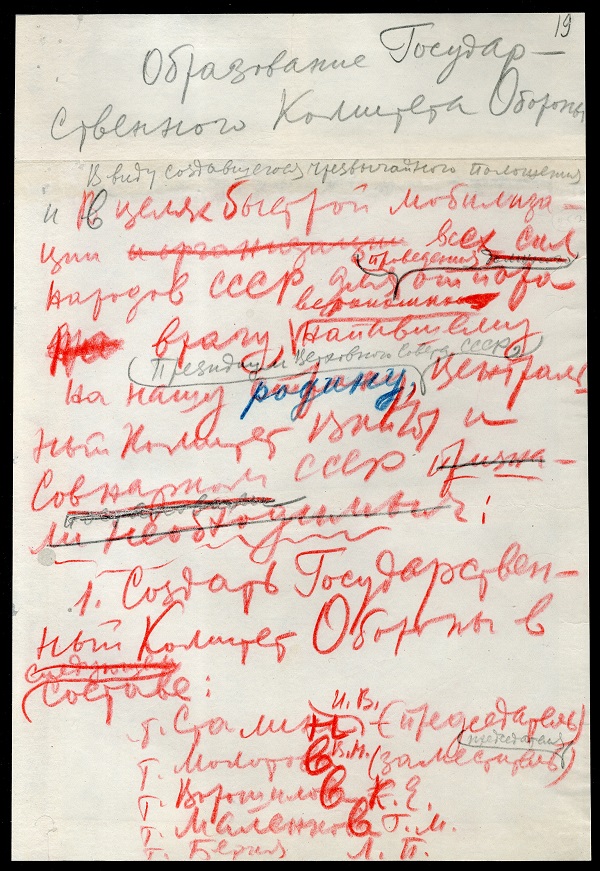 19
Образование Государ-
ственного Комитета Обороны
В виду создавшегося чрезвычайного положения
и В целях быстрой мобилиза-
ции и организации всех сил
проведения
народов СССР для отпора
вероломно
врагу напавшему
Президиум Верховного Совета СССР,
на нашу родину, Централь
ный Комитет ВКП(б) и
Совнарком СССР призна-
постановили
ли необходимым:
1. Создать Государствен-
ный Комитет Обороны в
следующем
составе:
И. В.
т. Сталин - (председатель)
председателя
В. М.
т. Молотов (заместитель)
т. Ворошилов К. Е.
т. Маленков Г. М.
т. Берия Л. П.